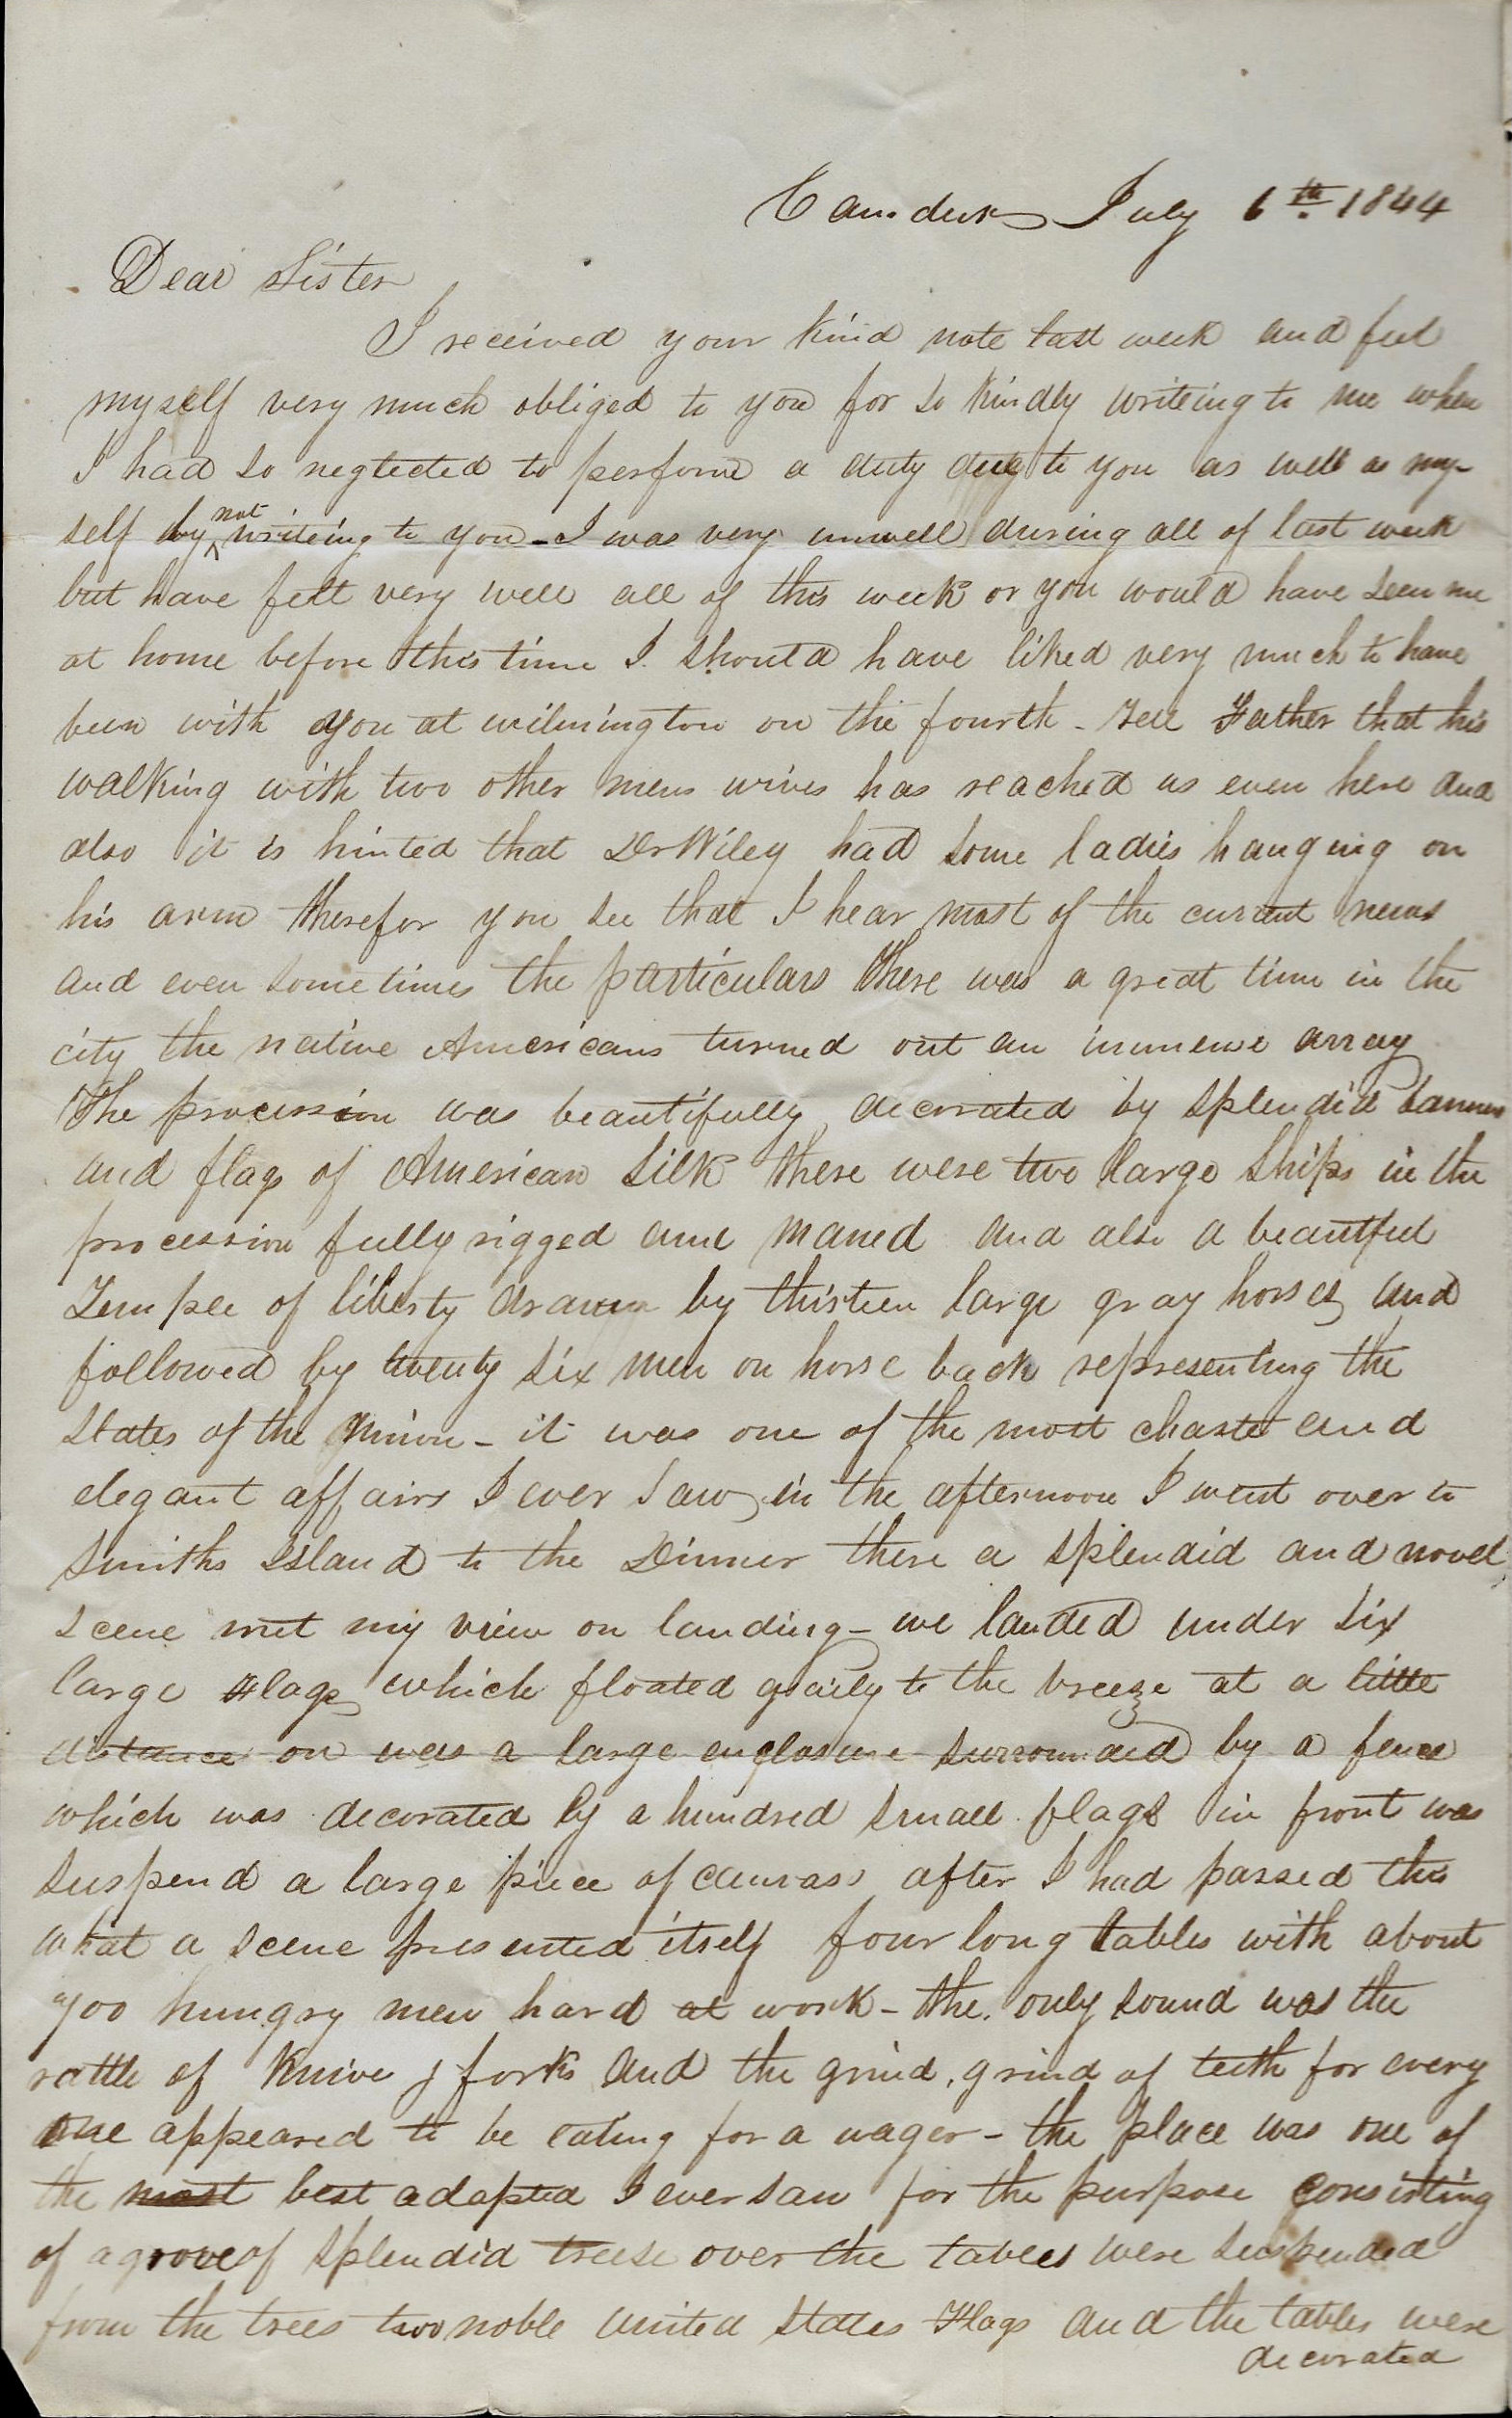 Camden July 6th 1844
Dear Sister
I received your kind note last week and feel
myself very much obliged to you for so kindly writeing to me when
I had so neglected to perform a duty due to you as well as my-
self by not writeing to you - I was very unwell during all of last week
but have felt very well all of this week or you would have seen me
at home before this time I should have liked very much to have
been with you at wilmington on the fourth - Tell Father that his
walking with two other mens wives has reached us even here and
also it is hinted that Dr Wiley had some ladies hanging on
his arm therefor you see that I hear most of the current news
and even sometimes the particulars there was a great time in the
city the native Americans turned out an immense array
The procession was beautifully decorated by splendid banners
and flags of American Silk there were two large ships in the
procession fully rigged and maned and also a beautful
Temple of liberty drawn by thirteen large gray horses and
followed by twenty six men on horse back representing the
states of the Union - it was one of the most chaste and
elegant affairs I ever saw, in the afternoon I went over to
Smiths Island to the Dinner there a splendid and novel
scene met my view on landing - we landed under six
large Flags which floated gaily to the breeze at a little
distance on was a large enclosure surrounded by a fence
which was decorated by a hundred small flags in front was
suspend a large piece of canvass after I had passed this
what a scene presented itself four long tables with about
700 hungry men hard at work - the only sound was the
rattle of Knive & forks and the grind, grind of teeth for every
one appeared to be eating for a wager - the place was one of
the most best adapted I ever saw for the purpose consisting
of a grove of splendid treese over the tables were suspended
from the trees two noble united States Flags and the tables were
decorated